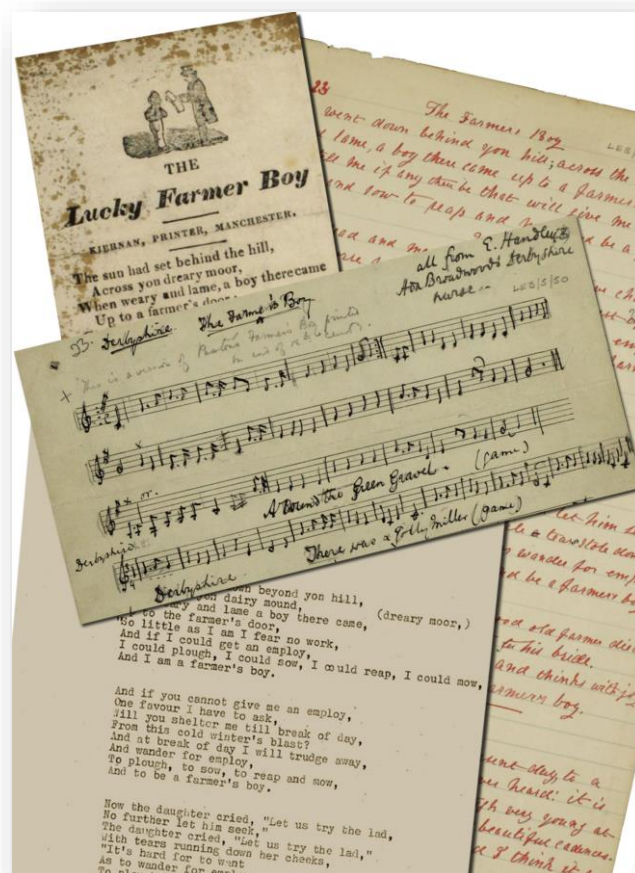 THE
Lucky Farmer Boy
KIERNAN, PRINTER, MANCHESTER.
The sun had set behind the hill,
Across you dreary moor,
When weary and lame, a boy there came
Up to a farmer's door
23
The Farmers Boy
LEB/
went down behind yon hill; across the
lame, a boy there came up to a farmer
me if any there be that will give me
sow to reap and
and be a
all from E. Handley
Ada Broadwood's Derbyshire
nurse
LEB/5/50
Derbyshire. The Farmer's Boy
This is a version of
Farmer's Boy printed
or.
Around the Green Gravel. (game)
Derbyshire
There was a jolly miller (game)
Derbyshire
beyond yon hill,
dairy mound, (dreary moor,)
and lame a boy there came,
to the farmer's door,
"So little as I am I fear no work,
And if I could get an employ,
I could plough, I could sow, I could reap, I could mow,
And I am a farmer's boy.
And if you cannot give me an employ,
One favour I have to ask,
Will you shelter me till break of day,
From this cold winter's blast?
And at break of day I will trudge away,
And wander for employ,
To plough, to sow, to reap and mow,
And to be a farmer's boy.
Now the daughter cried, "Let us try the lad,
No further let him seek,"
The daughter cried, "Let us try the lad,"
With tears running down her cheeks,
"It's hard for to want
As to wander for
let him
a tear stole down
wander for em
and be a farmers bo
good old farmer died
to his bride.
and thinks with j
farmers boy.
duly to a
heard: it is
very young at
beautiful cadences.
I think it